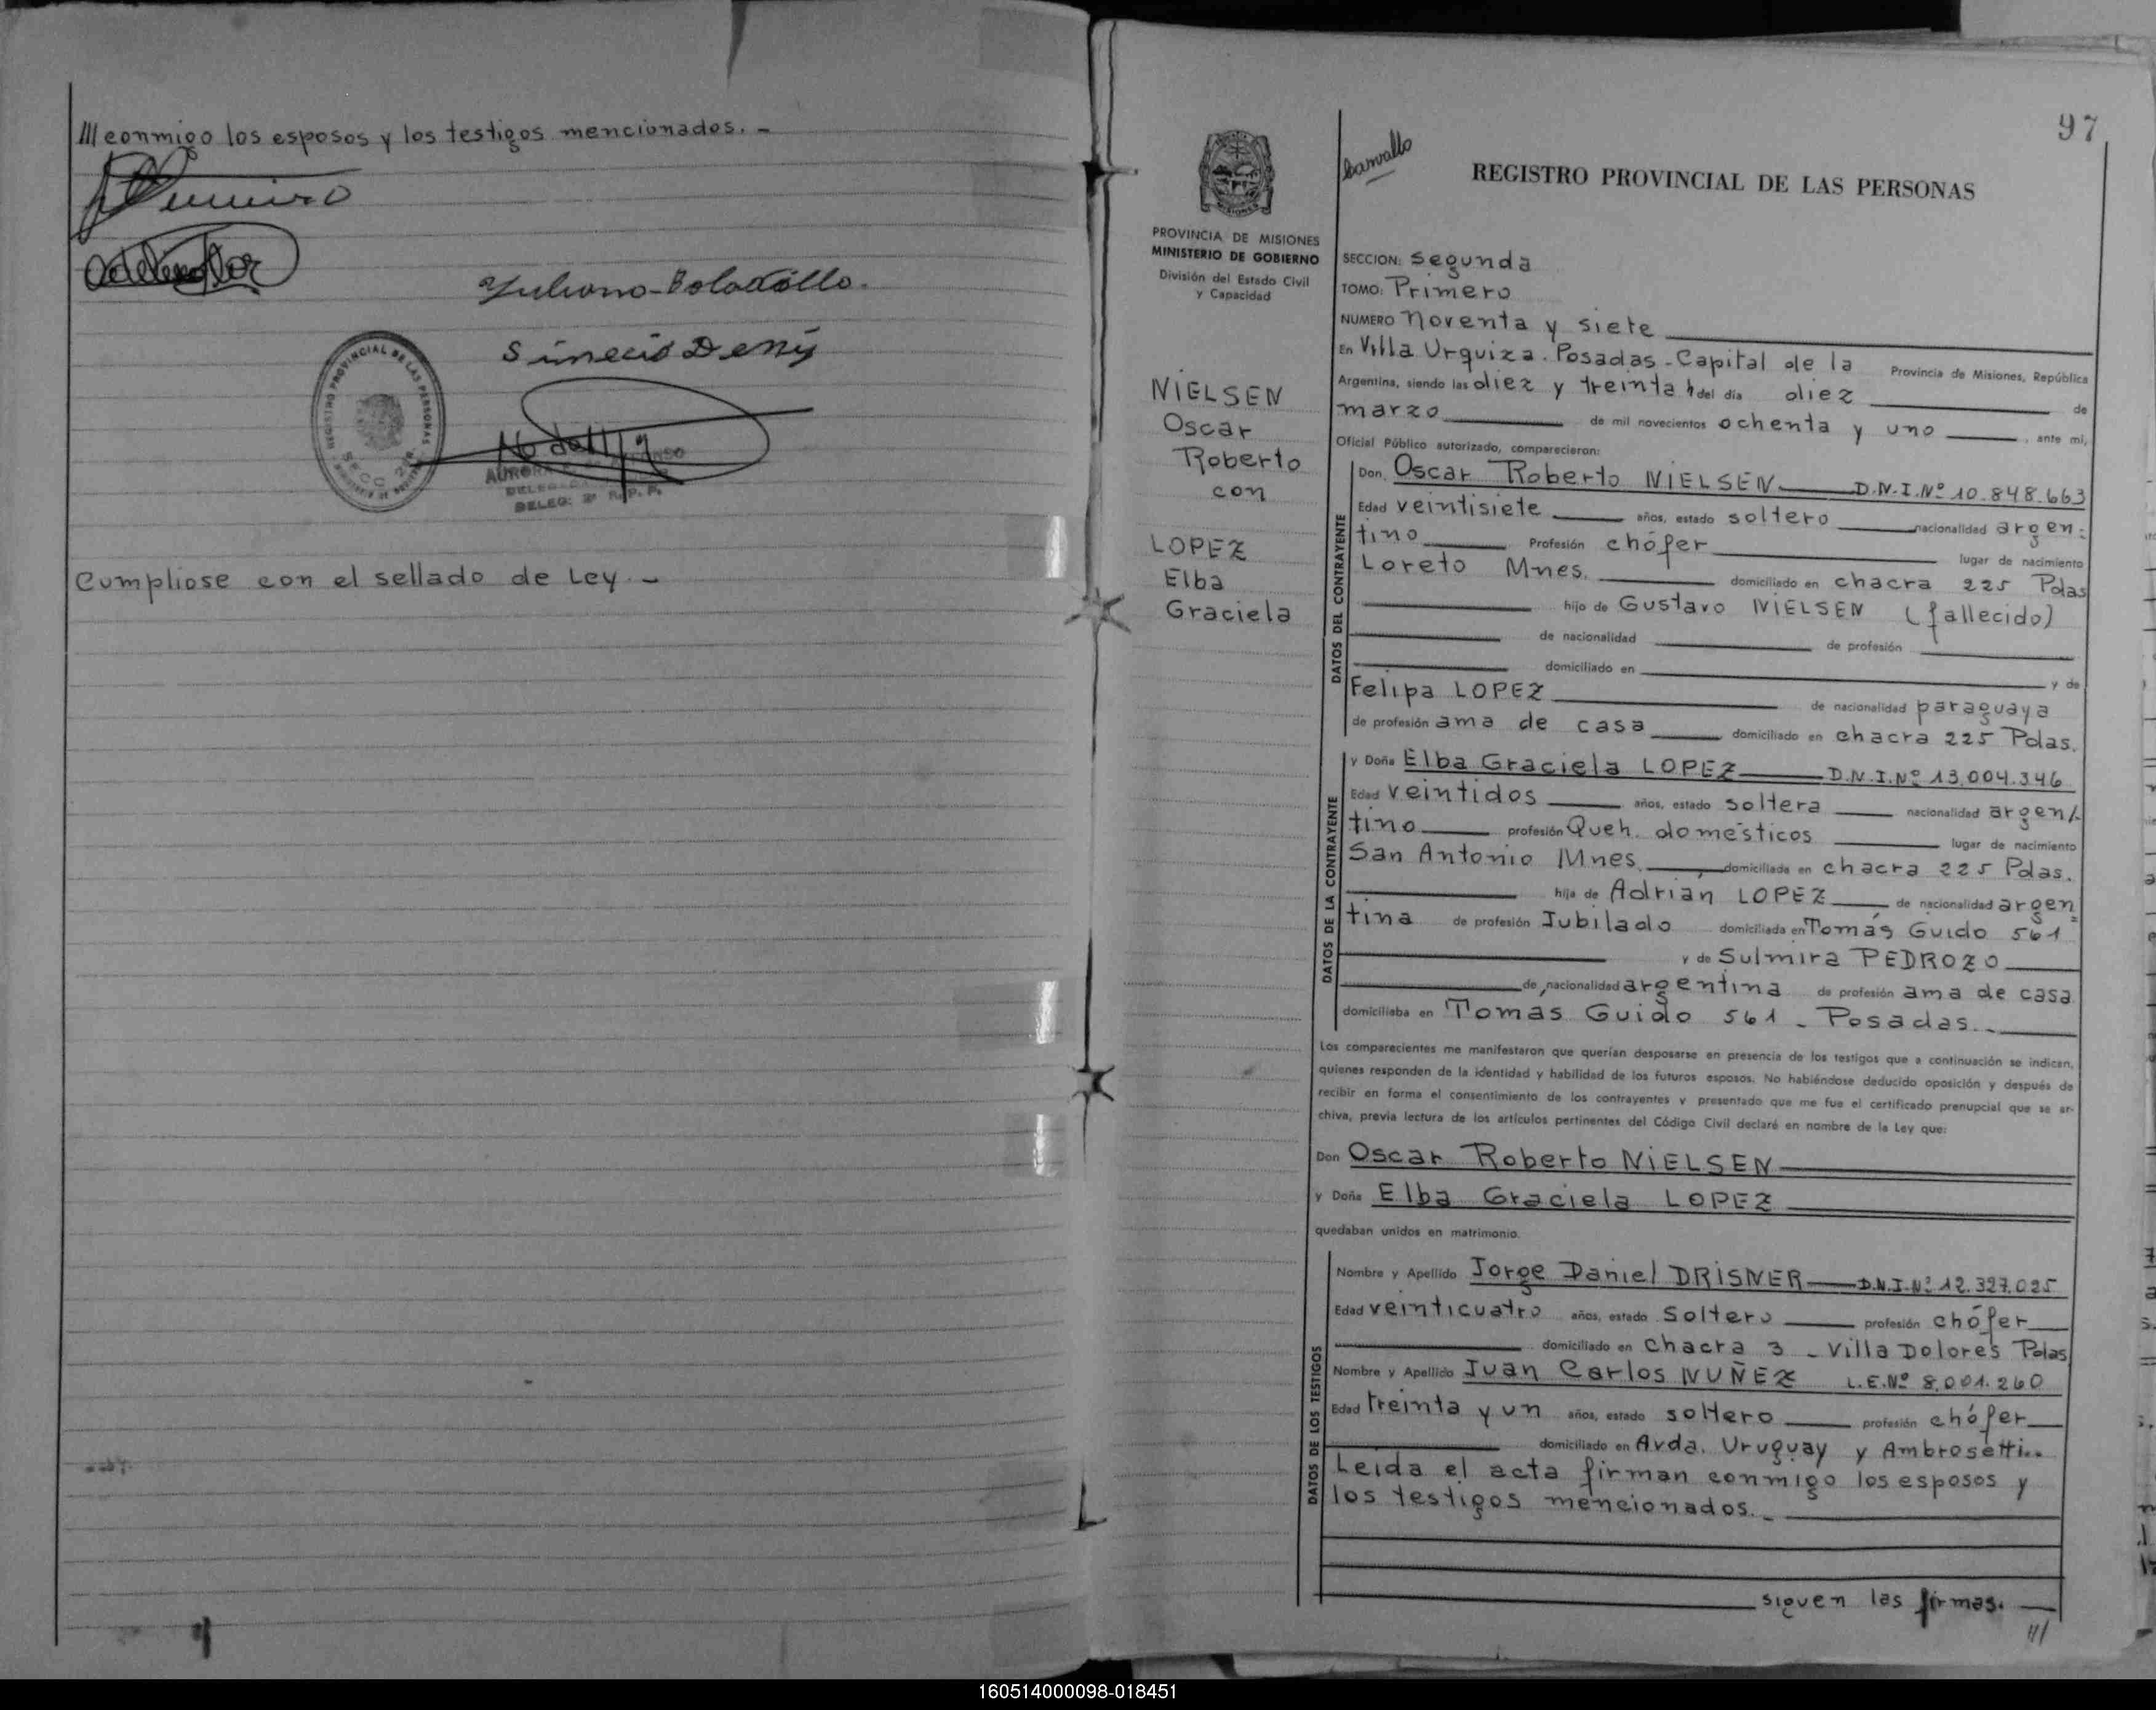 /// conmigo los esposos y los testigos mencionados. -
Sinecio Denis
REGISTRO PROVINCIAL DE LAS PERSONAS
SECC. 2da
AURORA
DELEG: 2ª R.P.P.
Cumpliose con el sellado de Ley. -
97
REGISTRO PROVINCIAL DE LAS PERSONAS
PROVINCIA DE MISIONES
MINISTERIO DE GOBIERNO
División del Estado Civil
y Capacidad
NIELSEN
Oscar
Roberto
con
LOPEZ
Elba
Graciela
SECCION: Segunda
TOMO: Primero
NUMERO noventa y siete
En Villa Urquiza. Posadas - Capital de la Provincia de Misiones, República
Argentina, siendo las diez y treinta h del día diez de
marzo de mil novecientos ochenta y uno, ante mi,
Oficial Público autorizado, comparecieron:
DATOS DEL CONTRAYENTE
Don. Oscar Roberto NIELSEN D.N.I.Nº 10.848.663
Edad veintisiete años, estado soltero nacionalidad argen=
tino Profesión chófer lugar de nacimiento
Loreto Mnes. domiciliado en chacra 225 Pdas
hijo de Gustavo NIELSEN (fallecido)
de nacionalidad de profesión
domiciliado en y de
Felipa LOPEZ de nacionalidad paraguaya
de profesión ama de casa domiciliado en chacra 225 Pdas.
DATOS DE LA CONTRAYENTE
y Doña Elba Graciela LOPEZ D.N.I.Nº 13.004.346
Edad veintidos años, estado soltera nacionalidad argen/
tino profesión Queh. domésticos lugar de nacimiento
San Antonio Mnes. domiciliada en chacra 225 Pdas.
hija de Adrián LOPEZ de nacionalidad argen=
tina de profesión Jubilado domiciliada en Tomás Guido 561
y de Sulmira PEDROZO
de nacionalidad argentina de profesión ama de casa
domiciliaba en Tomas Guido 561 - Posadas.-
Los comparecientes me manifestaron que querían desposarse en presencia de los testigos que a continuación se indican,
quienes responden de la identidad y habilidad de los futuros esposos. No habiéndose deducido oposición y después de
recibir en forma el consentimiento de los contrayentes y presentado que me fue el certificado prenupcial que se ar-
chiva, previa lectura de los artículos pertinentes del Código Civil declaré en nombre de la Ley que:
Don Oscar Roberto NIELSEN
y Doña Elba Graciela LOPEZ
quedaban unidos en matrimonio.
DATOS DE LOS TESTIGOS
Nombre y Apellido Jorge Daniel DRISNER D.N.I.Nº 12.327.025
Edad veinticuatro años, estado soltero profesión chófer
domiciliado en Chacra 3 - Villa Dolores Pdas
Nombre y Apellido Juan Carlos NUÑEZ L.E.Nº 8.001.260
Edad treinta y un años, estado soltero profesión chófer
domiciliado en Avda. Uruguay y Ambrosetti..
Leida el acta firman conmigo los esposos y
los testigos mencionados. -
siguen las firmas.
///
160514000098-018451